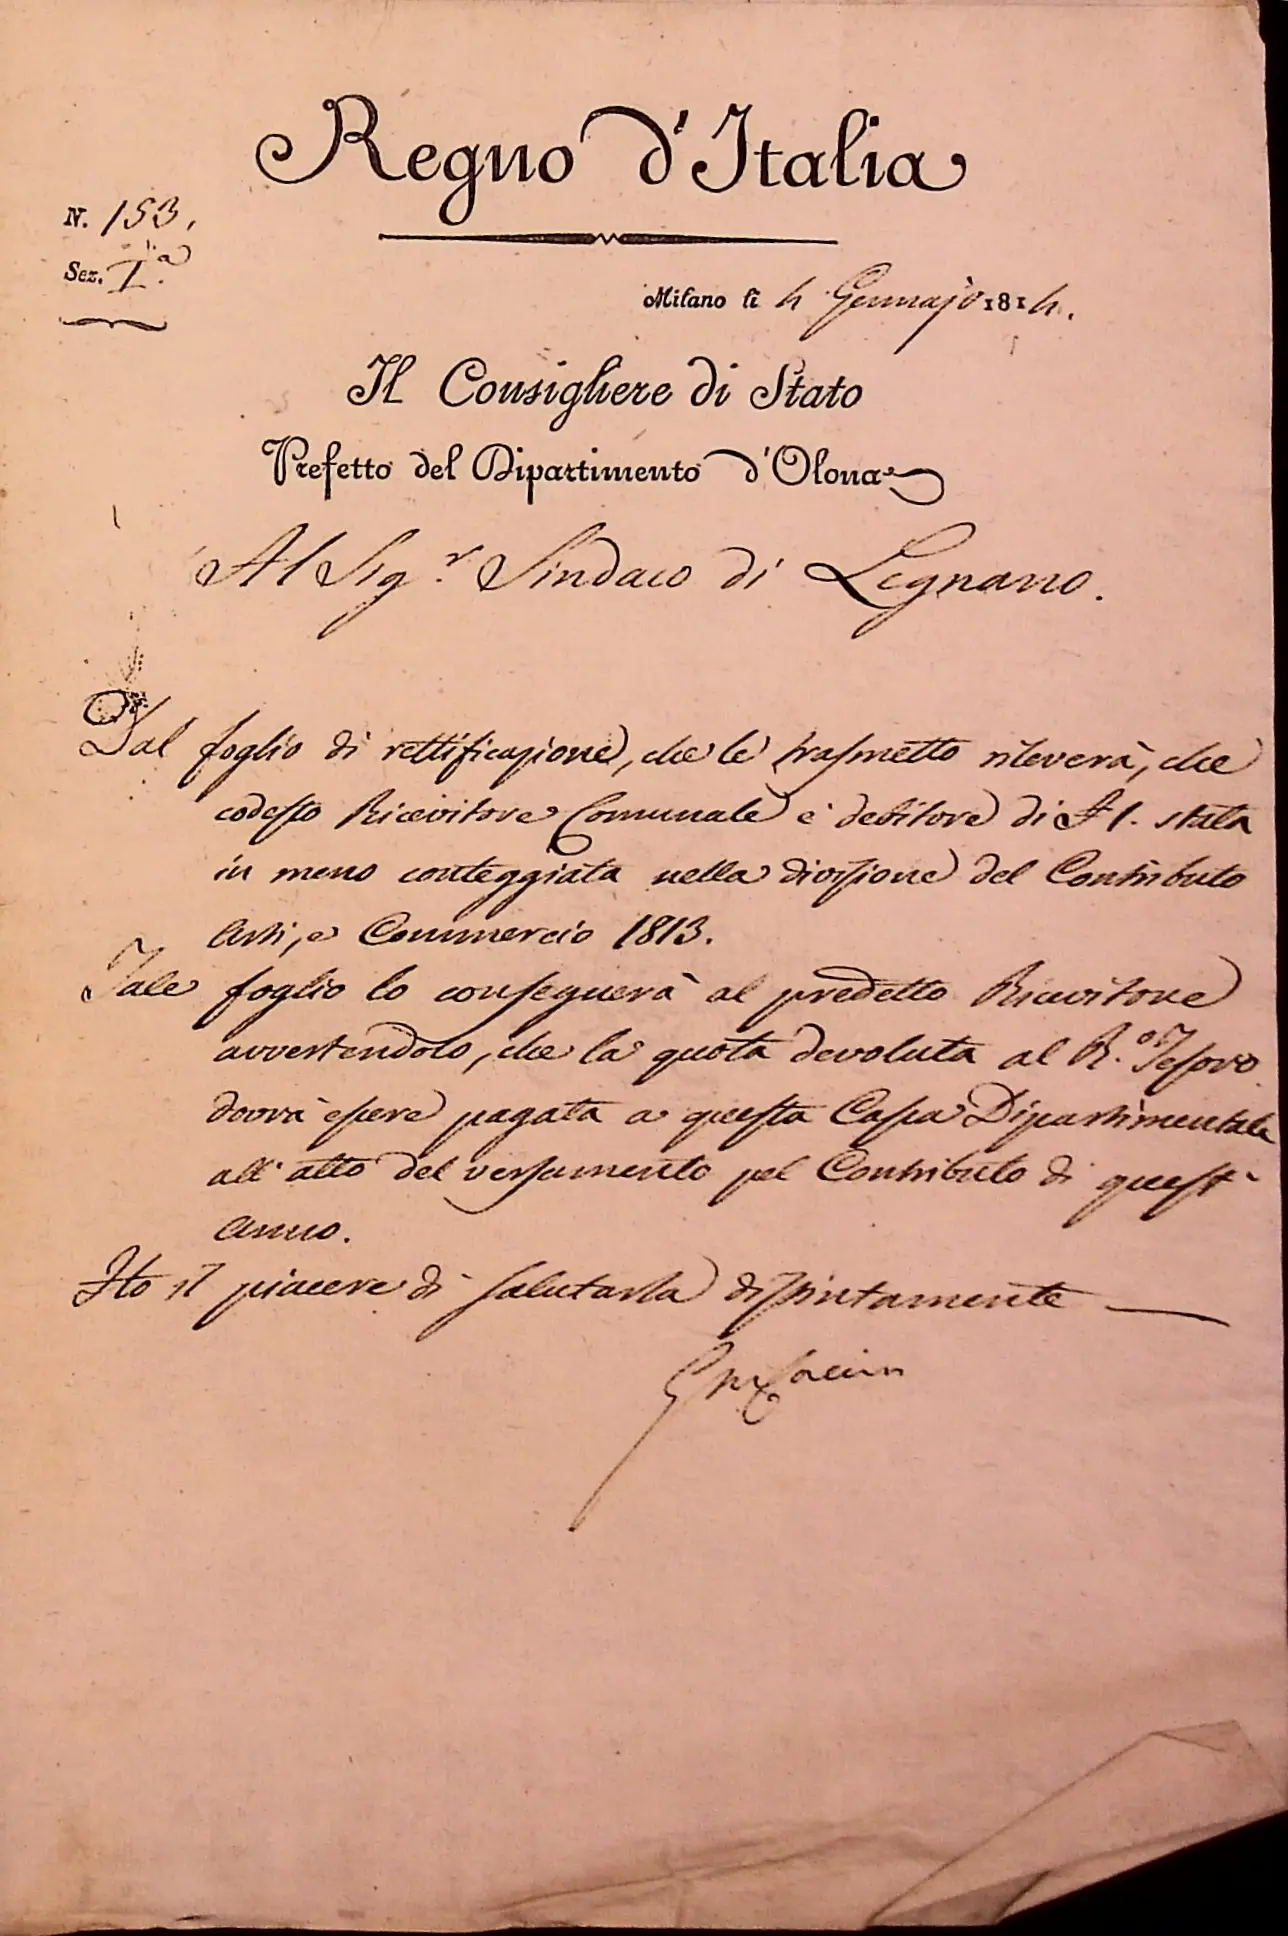 Regno d'Italia
N. 153.
Sez. I.a
Milano li 4 Gennajo 1814.
Il Consigliere di Stato
Prefetto del Dipartimento d'Olona
Al Sig.r Sindaco di Legnano.
Dal foglio di rettificazione, che le trasmetto rileverà, che
codesto Ricevitore Comunale è debitore di £ 1. stata
in meno conteggiata nella divisione del Contributo
Arti, e Commercio 1813.
Tale foglio lo conseguerà al predetto Ricevitore
avvertendolo, che la quota devoluta al R.o Tesoro
dovrà essere pagata a questa Cassa Dipartimentale
all'atto del versamento pel Contributo di quest'
anno.
Ho il piacere di salutarla distintamente